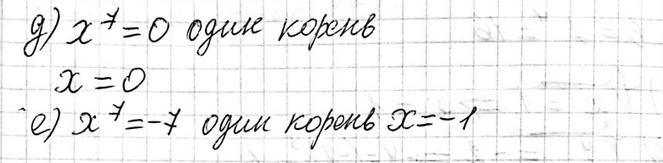 д) x⁷=0 один корень
x=0
е) x⁷=-7 один корень x=-1